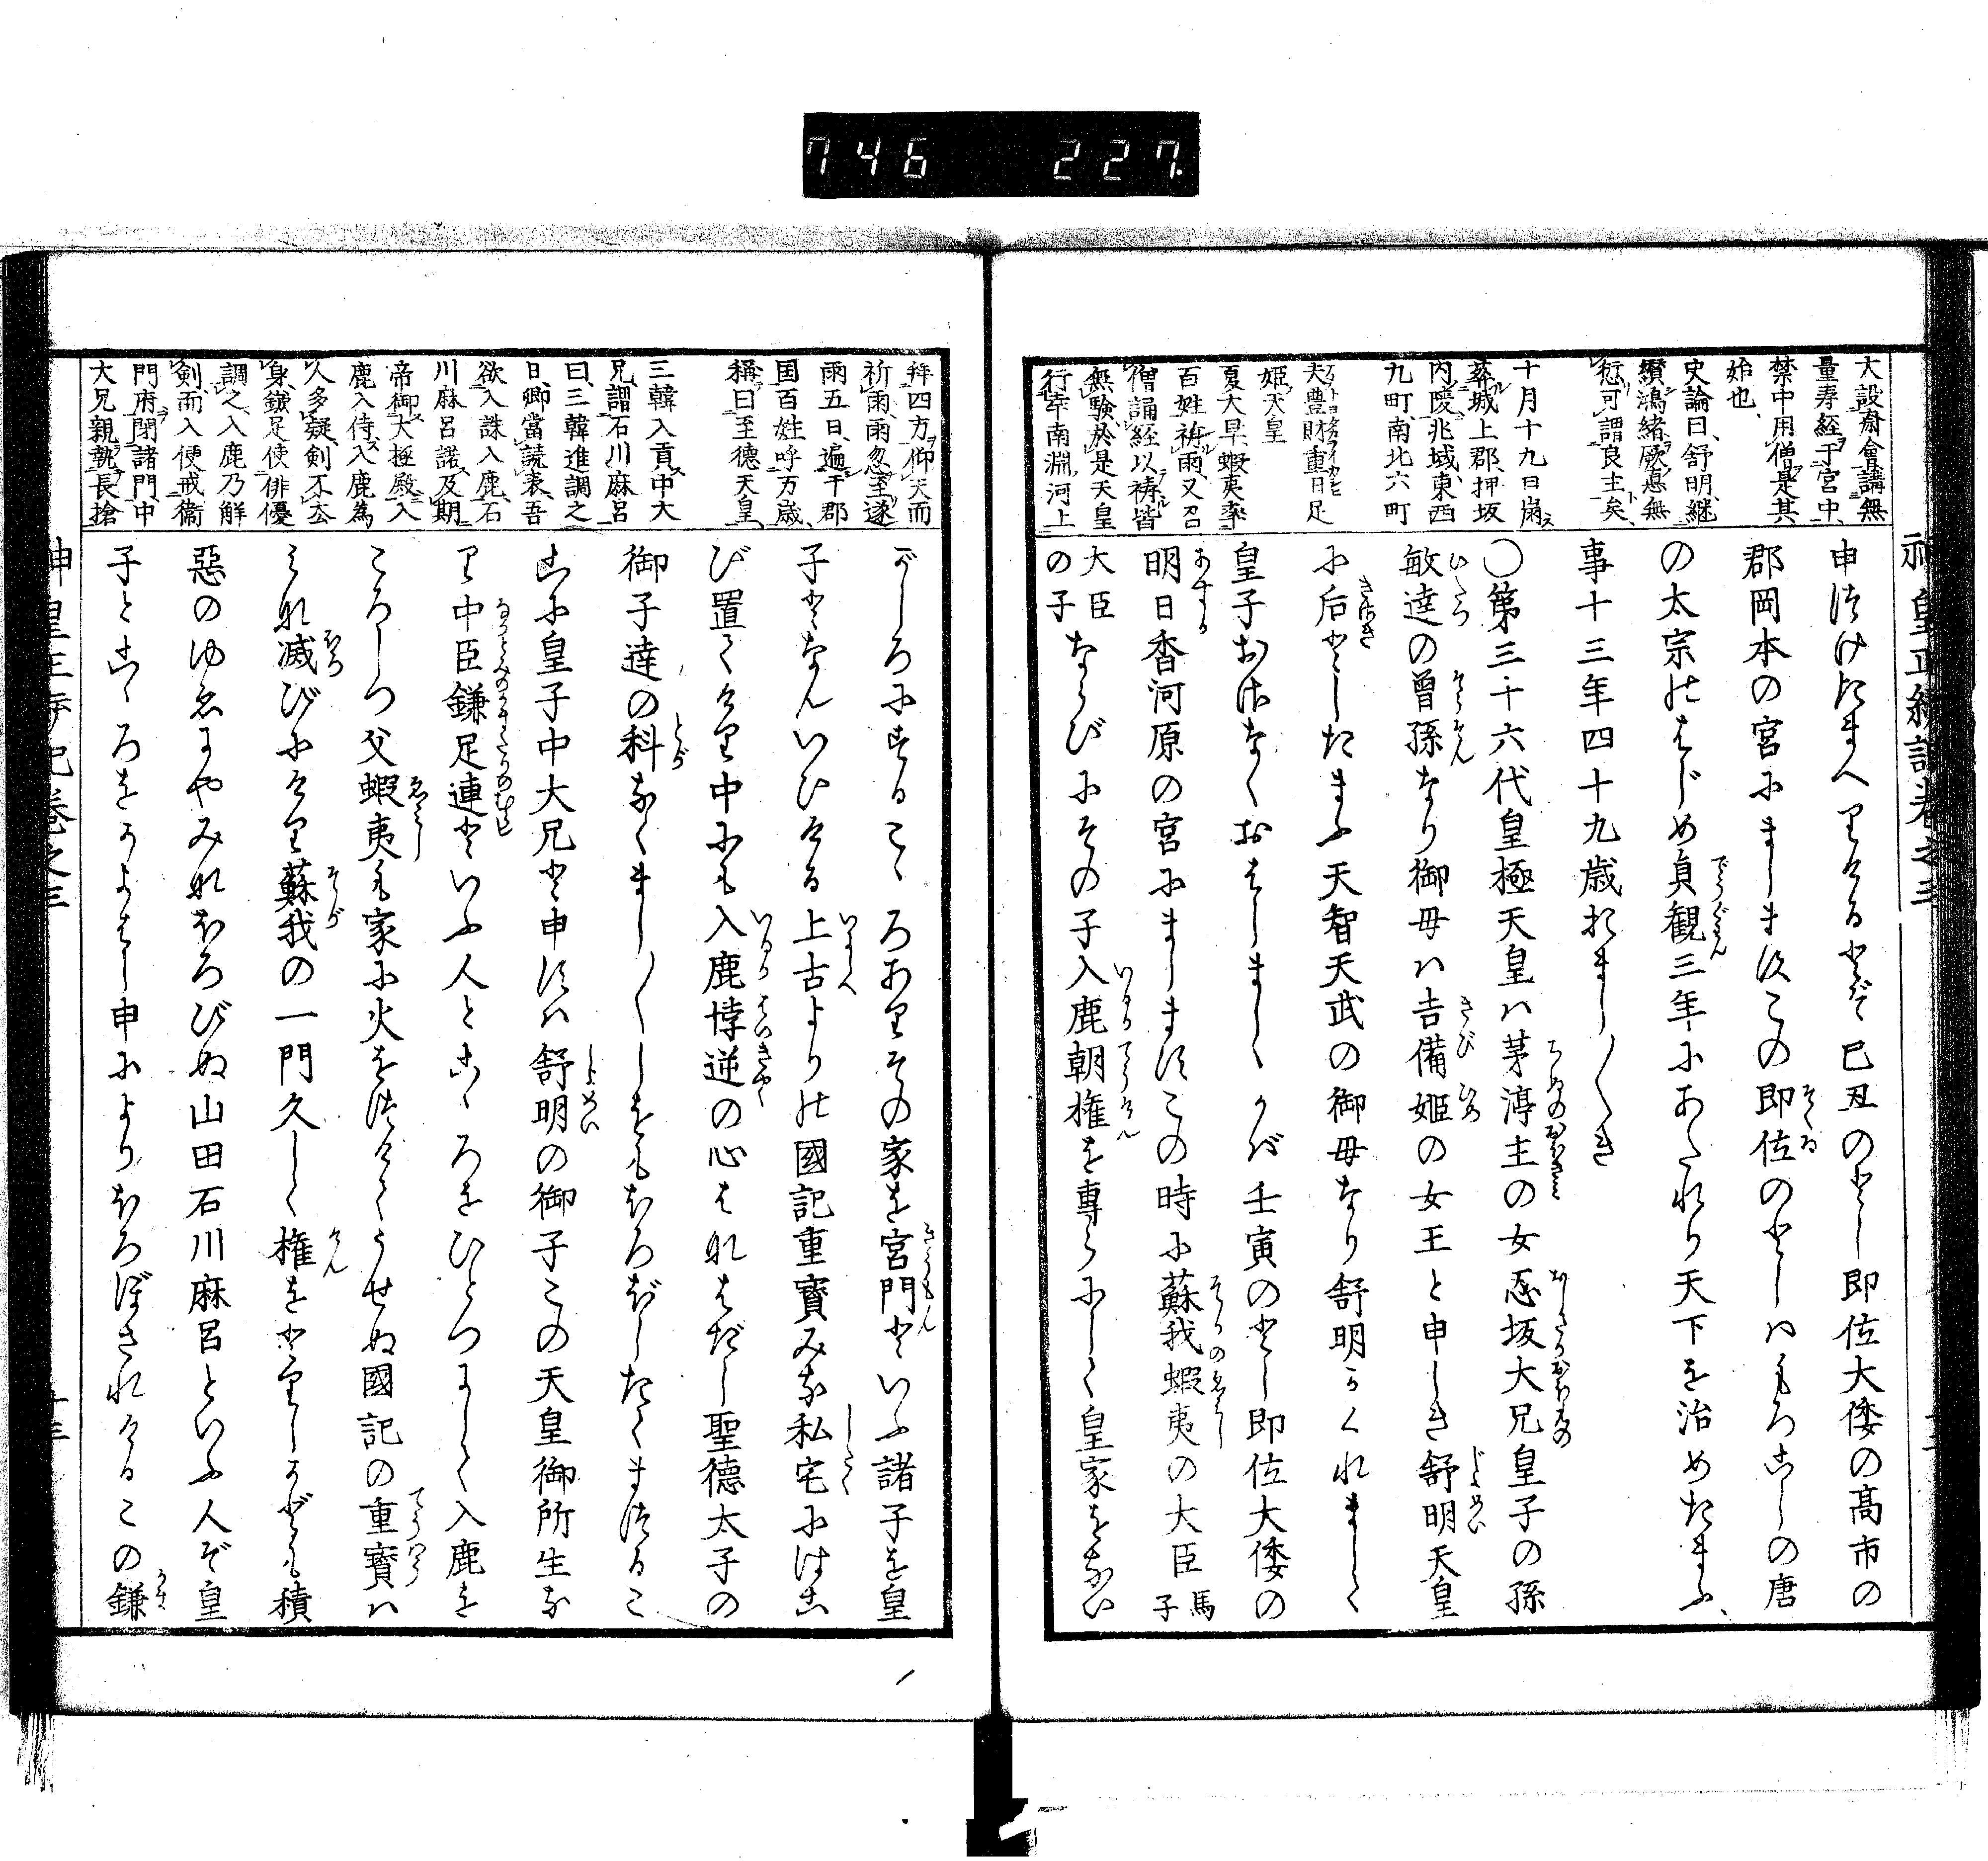 746 227
神皇正統記巻之三
大設齋會講無
量寿経于宮中、
禁中用僧是其
始也、
史論曰、舒明継
纉鴻緒厥悳無
愆可謂良主矣、
十月十九日崩
葬城上郡押坂
内陵兆域東西
九町南北六町
天豊財重日足
姫天皇
夏大旱、蝦夷率
百姓祷雨、又召
僧誦経以祷皆
無験、於是天皇
行幸南淵河上
申つけたまへりけるとぞ己丑のとし即位大倭の髙市の
郡岡本の宮にましますこの即位のとしハもろこしの唐
の太宗のはじめ貞観三年にあたれり天下を治めたまふ、
事十三年四十九歳おましましき
〇第三十六代皇極天皇ハ茅渟主の女忍坂大兄皇子の孫
敏達の曽孫なり御母ハ吉備姫の女王と申しき舒明天皇
に后としたまふ天智天武の御母なり舒明かくれましく
皇子おさなくおはしましゝかば壬寅のとし即位大倭の
明日香河原の宮にましますこの時に蘇我蝦夷の大臣馬子
大臣の子ならびにその子入鹿朝権を専らにして皇家をない
拝四方仰天而
祈雨、雨忽至遂
雨五日、遍于郡
国百姓呼万歳、
稱曰至德天皇、
三韓入貢、中大
兄謂石川麻呂
曰、三韓進調之
日、卿當読表、吾
欲入誅入鹿、石
川麻呂諾、及期
帝御大極殿、入
鹿入侍、入鹿為
人多疑、剣不去
身、鎌足使俳優
調之、入鹿乃解
剣、而入便戒衞
門府閉諸門、中
大兄親執長搶
がしろにするこゝろありその家を宮門といふ諸子を皇
子となんいひける上古よりの國記重寳みな私宅にはこ
び置てけり中にも入鹿悖逆の心はなはだし聖徳太子の
御子達の科なくましましゝをもほろぼしたてまつるこ
こに皇子中大兄と申すハ舒明の御子この天皇御所生な
り中臣鎌足連といふ人とこゝろをひとつにして入鹿を
ころしつ父蝦夷も家に火をつけてうせぬ國記の重寳ハ
みな滅びにけり蘇我の一門久しく権をとりしかども積
惡のゆゑにやみなほろびぬ山田石川麻呂といふ人ぞ皇
子とこゝろをかよはし申によりほろぼされけるこの鎌
神皇正統記巻之三